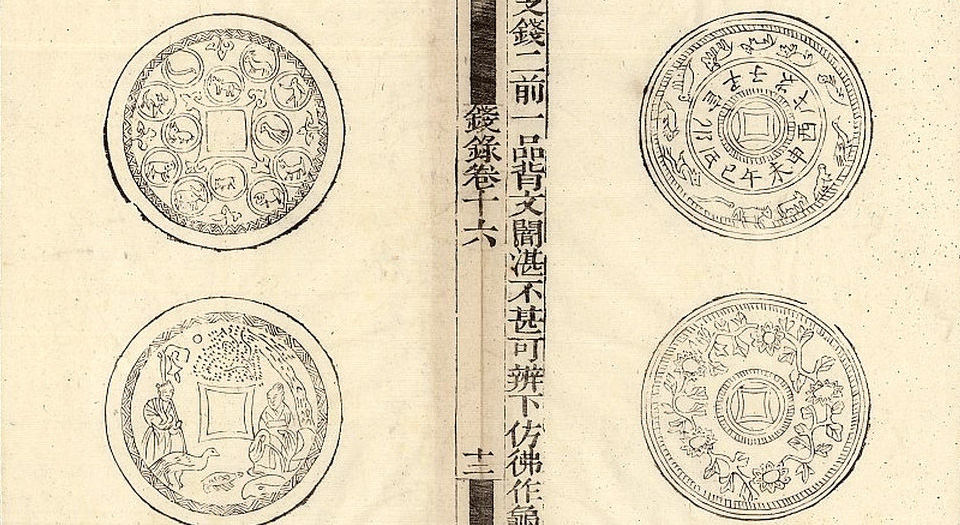 子丑寅卯辰巳午未申酉戌亥
支錢二前一品背文闇湛不甚可辨下仿彿作龜
錢錄卷十六
十二